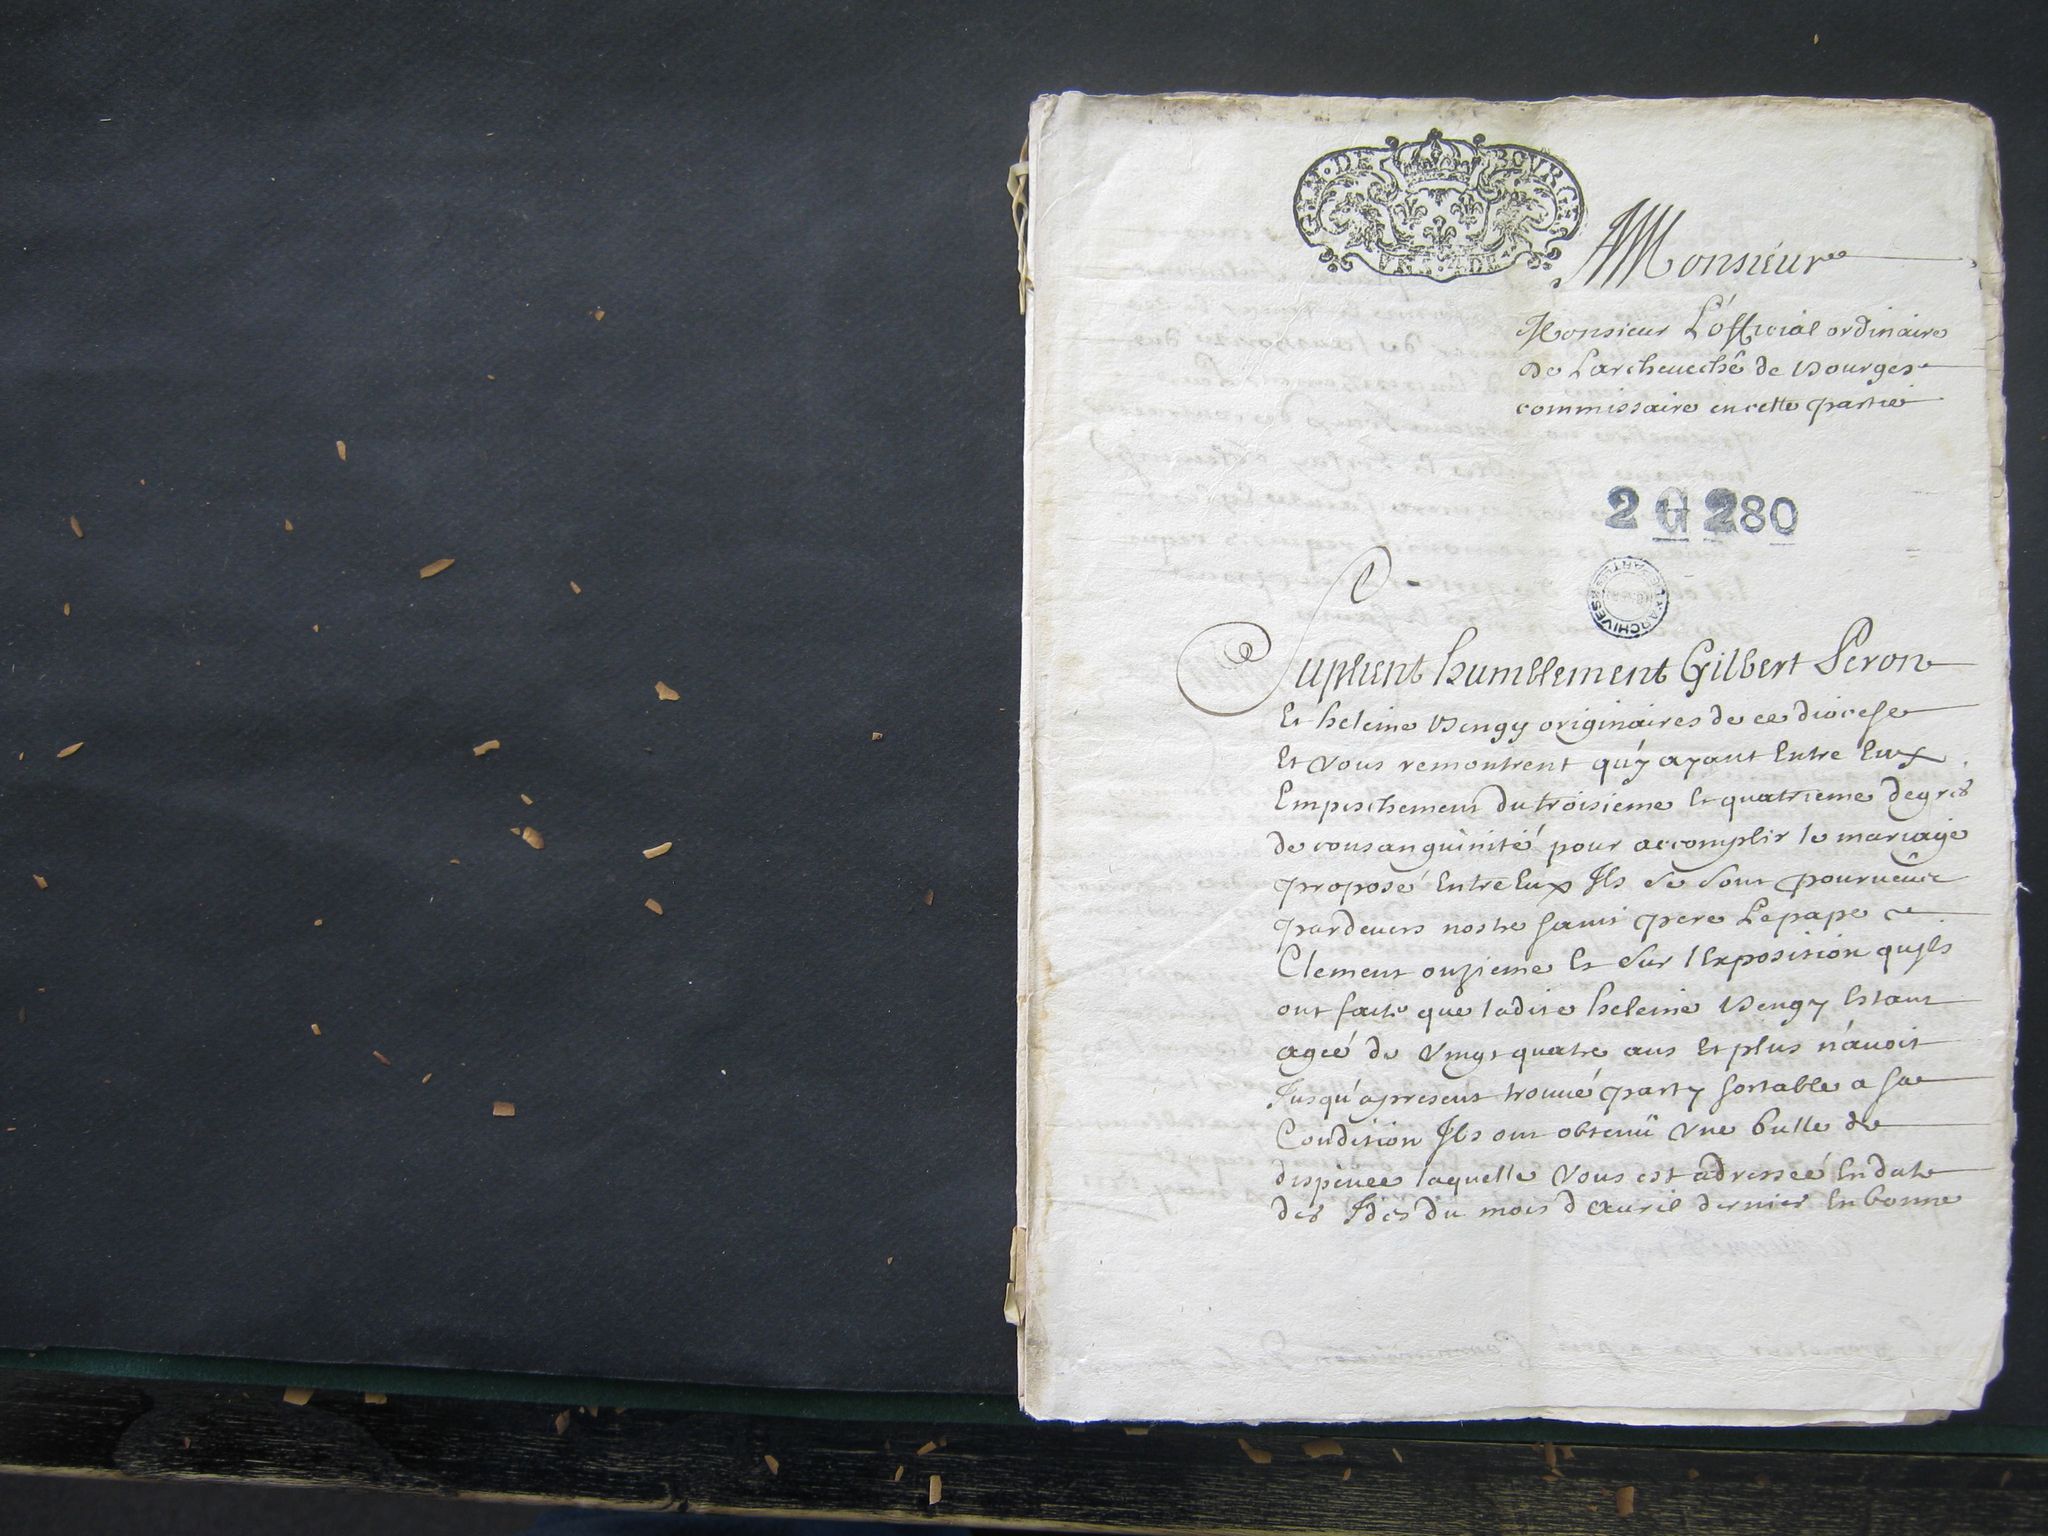 GEN · DE BOURGES
A Monsieur
Monsieur L'official ordinaire
de Larcheueché de Bourges
commissaire en cette partie
2 G 280
ARCHIVES
Suplient humblement Gilbert Peron
Et heleine Bengy originaires de ce diocese
Et Vous remontrent qu'y ayant Entre Eux
Empeschement du troisieme Et quatrieme degres
de consanguinité pour accomplir le mariage
proposé Entre Eux Ils se sont pourueüe
pardeuers nostre saint pere Le pape
Clement onzieme Et sur l'Exposition quils
ont faite que ladite heleine Bengy Estant
agée de Vingt quatre ans Et plus n'auoit
Jusqu'apresent trouué party sortable a sa
Condition Ils ont obtenü Vne bulle de
dispence laquelle Vous est adressée En date
des Ides du mois d'Auril dernier En bonne